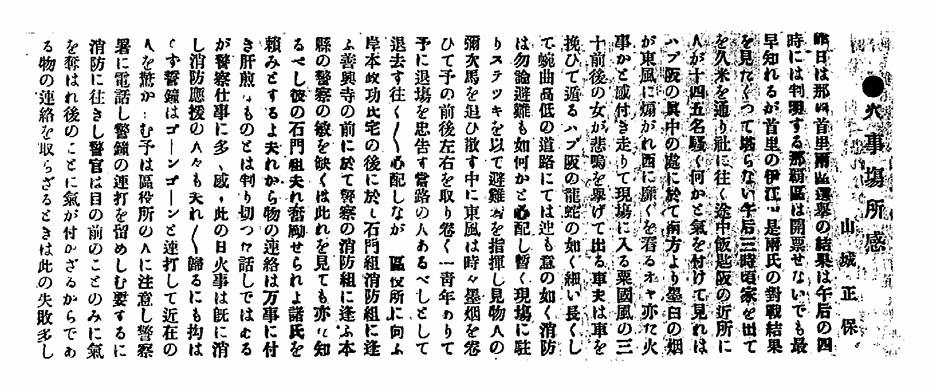 ●火事場所感
山城正保
昨日は那覇首里両區選挙の結果は午后の四
時には判明する那覇區は開票せないでも最
早知れるが首里の伊江 是兩氏の對戰結果
を見たくつて堪らない午后三時頃家を出て
を久米を通り社に往く途中飯匙阪の近所に
人が十四五名騒く何かと氣を付けて見れは
ハブ阪の眞中の處に於て南方より墨白の烟
が東風に煽がれ西に靡くを看るオヤ亦た火
事かと感付き走りて現場に入る粟國風の三
十前後の女が悲鳴を擧げて出る車夫は車を
挽ひて遁るハブ阪の龍蛇の如く細い長くし
て蜿曲高低の道路にては迚も意の如く消防
は勿論避難も如何かと心配し暫く現場に駐
りステツキを以て避難者を指揮し見物人の
彌次馬を追ひ散す中に東風は時々墨烟を卷
ひて予の前後左右を取り卷く一青年ありて
予に退場を忠告す當路の人あるべしとして
退去す往く〳〵心配しなが 區役所に向ふ
岸本政功氏宅の後に於し石門組消防組に逢
ふ善興寺の前に於て警察の消防組に逢ふ本
縣の警察の敏を缺くは此れを見ても亦た知
るべし彼の石門組夫れ奮勵せられよ諸氏を
頼みとするよ夫れから物の連絡は万事に付
き肝煎 ものとは判り切つた話しではある
が警察仕事に多 感 此の日火事は既に消
し消防應援の人々も夫れ〳〵歸るにも拘は
らす警鐘はゴーンゴーンと連打して近在の
人を驚か む予は區役所の人に注意し警察
署に電話し警鐘の連打を留めしむ要するに
消防に往きし警官は目の前のことのみに氣
を奪はれ後のことに氣が付かざるからであ
る物の連絡を取らざるときは此の失敗多し